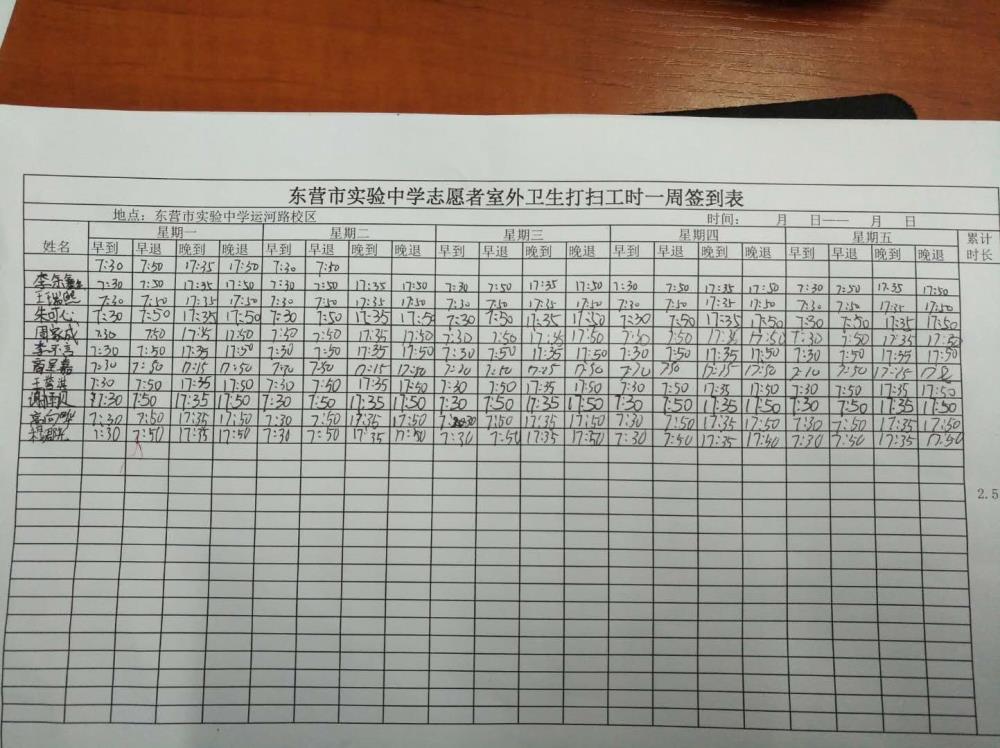 东营市实验中学志愿者室外卫生打扫工时一周签到表
地点：东营市实验中学运河路校区 时间： 月 日—— 月 日
姓名 星期一 星期二 星期三 星期四 星期五 累计时长
早到 早退 晚到 晚退 早到 早退 晚到 晚退 早到 早退 晚到 晚退 早到 早退 晚到 晚退 早到 早退 晚到 晚退
7:30 7:50 17:35 17:50 7:30 7:50
7:30 7:50 17:35 17:50 7:30 7:50 17:35 17:50 7:30 7:50 17:35 17:50 7:30 7:50 17:35 17:50 7:30 7:50 17:35 17:50
7:30 7:50 17:35 17:50 7:30 7:50 17:35 17:50 7:30 7:50 17:35 17:50 7:30 7:50 17:35 17:50 7:30 7:50 17:35 17:50
朱可心 7:30 7:50 17:35 17:50 7:30 7:50 17:35 17:50 7:30 7:50 17:35 17:50 7:30 7:50 17:35 17:50 7:30 7:50 17:35 17:50
周家成 7:30 7:50 17:50 7:50 17:35 17:50 7:30 7:50 17:50 7:30 7:50 17:50 7:30 7:50 17:35 17:50
7:30 7:50 17:35 17:50 7:30 7:50 17:35 17:50 7:30 7:50 17:35 17:50 7:30 7:50 17:35 17:50 7:30 7:50 17:50
7:30 7:50
7:30 7:50 17:35 17:50 7:30 7:50 17:35 17:50 7:30 7:50 17:35 17:50 7:30 7:50 17:35 17:50 7:30 7:50 17:35 17:50
17:30 7:50 17:35 17:50 7:30 7:50 17:35 17:50 7:30 7:50 17:35 17:50 7:30 7:50 17:35 17:50 7:30 7:50 17:35 17:50
7:30 7:50 17:35 17:50 7:30 7:50 17:35 17:50 7:50 17:35 17:50 7:30 7:50 17:35 17:50 7:30 7:50 17:35 17:50
7:30 7:50 17:35 17:50 7:30 7:50 17:35 17:50 7:30 7:50 17:35 17:50 7:30 7:50 17:35 17:50 7:30 7:50 17:35 17:50
2.5